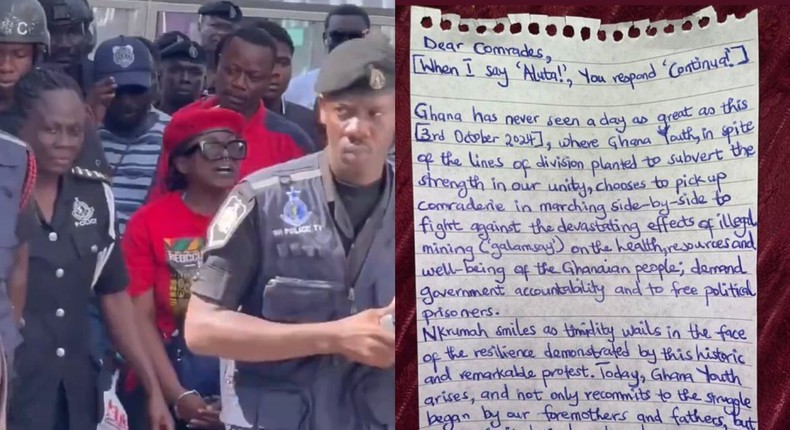 POLICE
POLICE
REOCCU
Dear Comrades,
[When I say 'Aluta!', You respond 'Continua!']
Ghana has never seen a day as great as this
[3rd October 2024], where Ghana Youth, in spite
of the lines of division planted to subvert the
strength in our unity, chooses to pick up
comraderie in marching side-by-side to
fight against the devastating effects of illegal
mining ('galamsey') on the health, resources and
well-being of the Ghanaian people; demand
government accountability and to free political
prisoners.
Nkrumah smiles as timidity wails in the face
of the resilience demonstrated by this historic
and remarkable protest. Today, Ghana Youth
arises, and not only recommits to the struggle
began by our foremothers and fathers, but